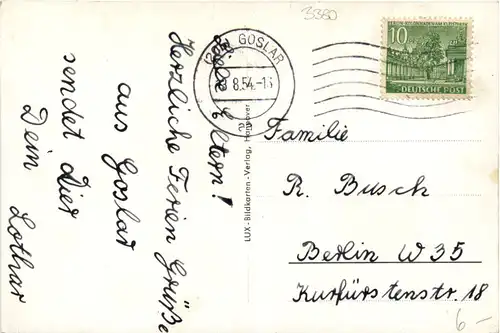 3380
(20b) GOSLAR
8.54.-13
a
BERLIN-KOLONNADEN AM KLEISTPARK
10
DEUTSCHE POST
Liebe Eltern!
Herzliche Ferien Grüße
aus Goslar
sendet Dier
Dein Lothar
LUX-Bildkarten-Verlag, Hannover
Familie
R. Busch
Berlin W 35
Kurfürstenstr. 18
6.-